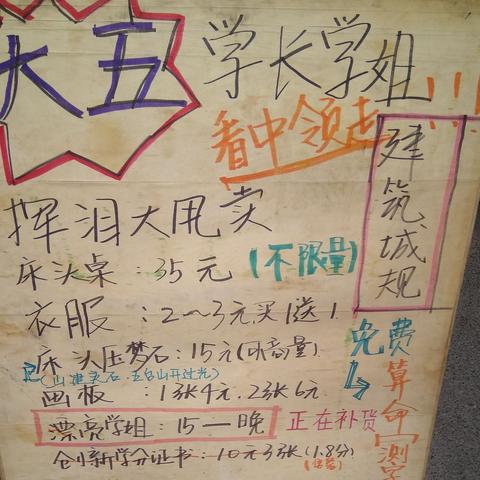 大五
学长学姐
看中领走
建筑城规
挥泪大甩卖
床头桌:35元(不限量)
衣服:2～3元,买1送1
床头压梦石:15元(限量)
画板:1张4元,2张6元
漂亮学姐:15一晚
正在补货
创新学分证书:10元3张(1.8分)
免费
算命
测字